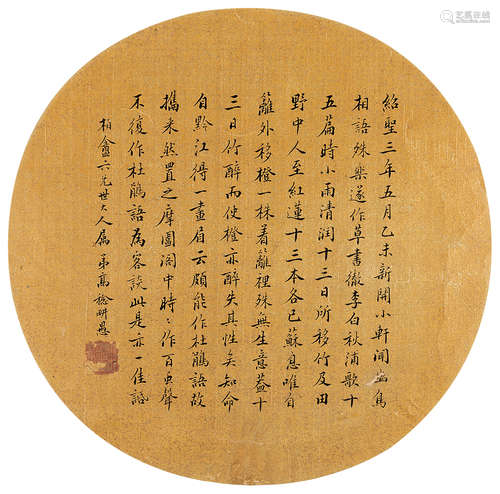 紹聖三年五月乙未新開小軒聞幽鳥
相語殊樂遂作草書徹李白秋浦歌十
五篇時小雨清潤十三日所移竹及田
野中人至紅蓮十三本各已蘇息唯自
籬外移橙一株着籬裡殊無生意蓋十
三日竹醉而使橙亦醉失其性矣知命
自黔江得一畫眉云頗能作杜鵑語故
攜來然置之摩圍閣中時〻作百虫聲
不復作杜鵑語爲客談此是亦一佳話
柏盦六兄世大人屬 弟高